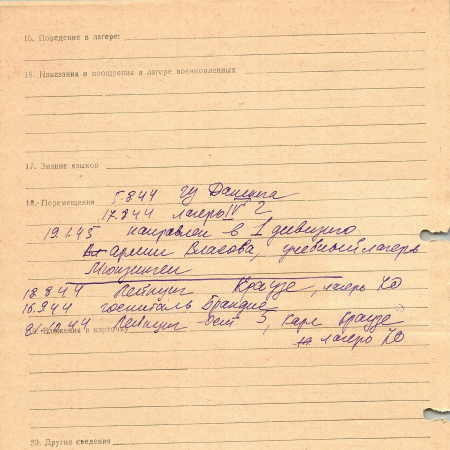 15. Поведение в лагере:
16. Наказания и поощрения в лагере военнопленных
17. Знание языков
18. Перемещения I.8 44 из Данцига
17.8 44 лагерь IV G
19.1.45 направлен в 1 дивизию
армии Власова, учебный лагерь
Мюнзинген
18.8 44 Лейпциг Краузе, лагерь
16.9 44 госпиталь Брандис
21.10.44 Лейпциг Ост 5, Карл Краузе
19. Вложения в карточку лагерь
20. Другие сведения